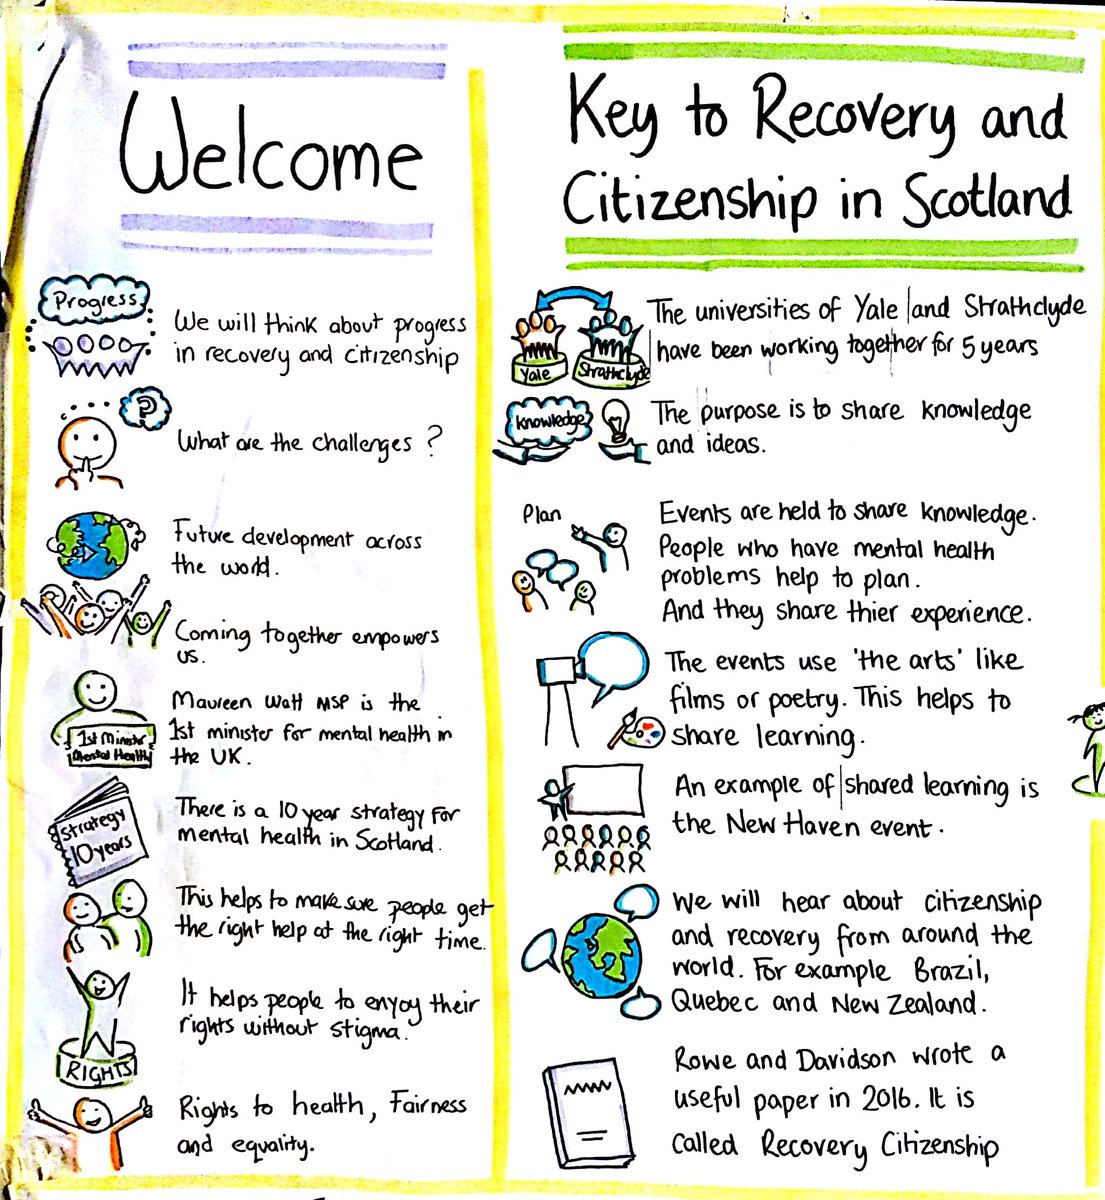 Welcome
Progress
We will think about progress
in recovery and citizenship
?
What are the challenges?
Future development across
the world.
Coming together empowers
us.
1st Minister
Mental Health
Maureen Watt MSP is the
1st minister for mental health in
the UK.
Strategy
10 years
There is a 10 year strategy for
mental health in Scotland.
This helps to make sure people get
the right help at the right time.
It helps people to enyoy their
rights without stigma.
RIGHTS
Rights to health, Fairness
and equality.
Key to Recovery and
Citizenship in Scotland
Yale
Strathclyde
The universities of Yale and Strathclyde
have been working together for 5 years
Knowledge
The purpose is to share knowledge
and ideas.
Plan
Events are held to share knowledge.
People who have mental health
problems help to plan.
And they share thier experience.
The events use 'the arts' like
films or poetry. This helps to
share learning.
An example of shared learning is
the New Haven event.
We will hear about citizenship
and recovery from around the
world. For example Brazil,
Quebec and New Zealand.
Rowe and Davidson wrote a
useful paper in 2016. It is
called Recovery Citizenship